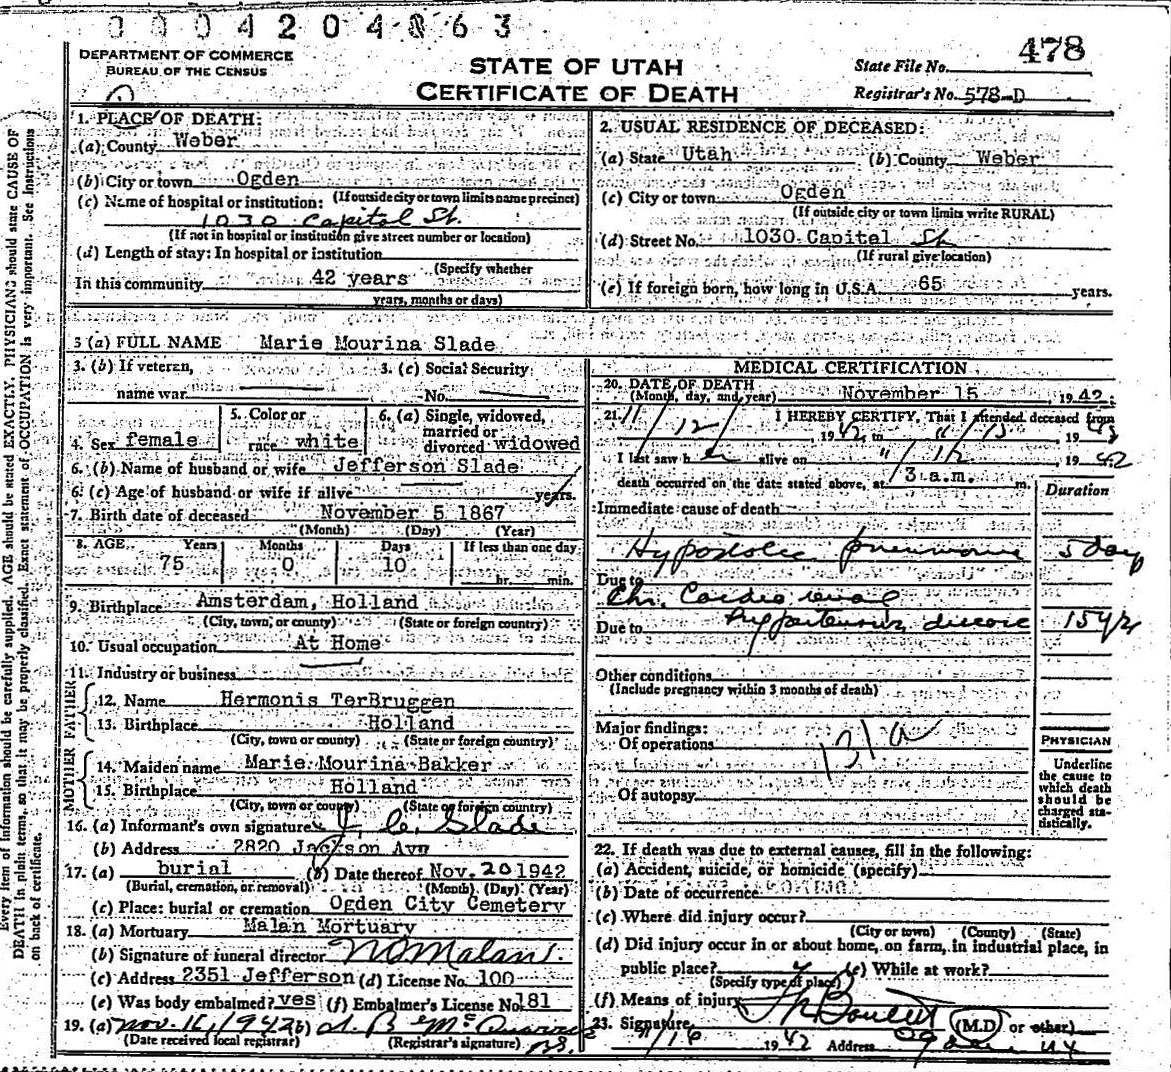 0004204063
DEPARTMENT OF COMMERCE
BUREAU OF THE CENSUS
STATE OF UTAH
CERTIFICATE OF DEATH
478
State File No.
Registrar's No. 578-D
Every item of information should be carefully supplied. AGE should be stated EXACTLY. PHYSICIANS should state CAUSE OF
DEATH in plain terms, so that it may be properly classified. Exact statement of OCCUPATION is very important. See instructions
on back of certificate.
1. PLACE OF DEATH:
(a) County Weber
(b) City or town Ogden
(If outside city or town limits name precinct)
(c) Name of hospital or institution:
1030 Capitol St.
(If not in hospital or institution give street number or location)
(d) Length of stay: In hospital or institution
(Specify whether
In this community 42 years
years, months or days)
2. USUAL RESIDENCE OF DECEASED:
(a) State Utah (b) County Weber
(c) City or town Ogden
(If outside city or town limits write RURAL)
(d) Street No. 1030 Capitel St
(If rural give location)
(e) If foreign born, how long in U.S.A. 65 years.
3 (a) FULL NAME Marie Mourina Slade
3. (b) If veteran,
name war
3. (c) Social Security
No.
4. Sex female
5. Color or
race white
6. (a) Single, widowed,
married or
divorced widowed
6. (b) Name of husband or wife Jefferson Slade
6. (c) Age of husband or wife if alive years.
7. Birth date of deceased November 5 1867
(Month) (Day) (Year)
8. AGE Years Months Days If less than one day
75 0 10 hr. min.
9. Birthplace Amsterdam, Holland
(City, town, or county) (State or foreign country)
10. Usual occupation At Home
11. Industry or business
FATHER
12. Name Hermonis TerBruggen
13. Birthplace Holland
(City, town or county) (State or foreign country)
MOTHER
14. Maiden name Marie Mourina Bakker
15. Birthplace Holland
(City, town or county) (State or foreign country)
16. (a) Informant's own signature J. C. Slade
(b) Address 2820 Jackson Ave
17. (a) burial (b) Date thereof Nov. 20 1942
(Burial, cremation, or removal) (Month) (Day) (Year)
(c) Place: burial or cremation Ogden City Cemetery
18. (a) Mortuary Malan Mortuary
(b) Signature of funeral director N O Malan
(c) Address 2351 Jefferson (d) License No. 100
(e) Was body embalmed? yes (f) Embalmer's License No. 181
19. (a) Nov. 16, 1942 (b)
(Date received local registrar) (Registrar's signature)
MEDICAL CERTIFICATION
20. DATE OF DEATH
(Month, day, and year) November 15 1942
21. I HEREBY CERTIFY, That I attended deceased from
11/12 1942 to 11/15 1942
I last saw her alive on 11/12 1942
death occurred on the date stated above, at 3 a.m. m.
Duration
Immediate cause of death
Hypostatic pneumonia 5 days
Due to
Chr. Cardio renal
Due to hypertensive disease 15 yrs
Other conditions
(Include pregnancy within 3 months of death)
Major findings:
Of operations
131a
Of autopsy
PHYSICIAN
Underline
the cause to
which death
should be
charged sta-
tistically.
22. If death was due to external causes, fill in the following:
(a) Accident, suicide, or homicide (specify)
(b) Date of occurrence
(c) Where did injury occur?
(City or town) (County) (State)
(d) Did injury occur in or about home, on farm, in industrial place, in
public place? (e) While at work?
(Specify type of place)
(f) Means of injury
23. Signature (M.D. or other)
11/16 1942 Address Ogden Ut